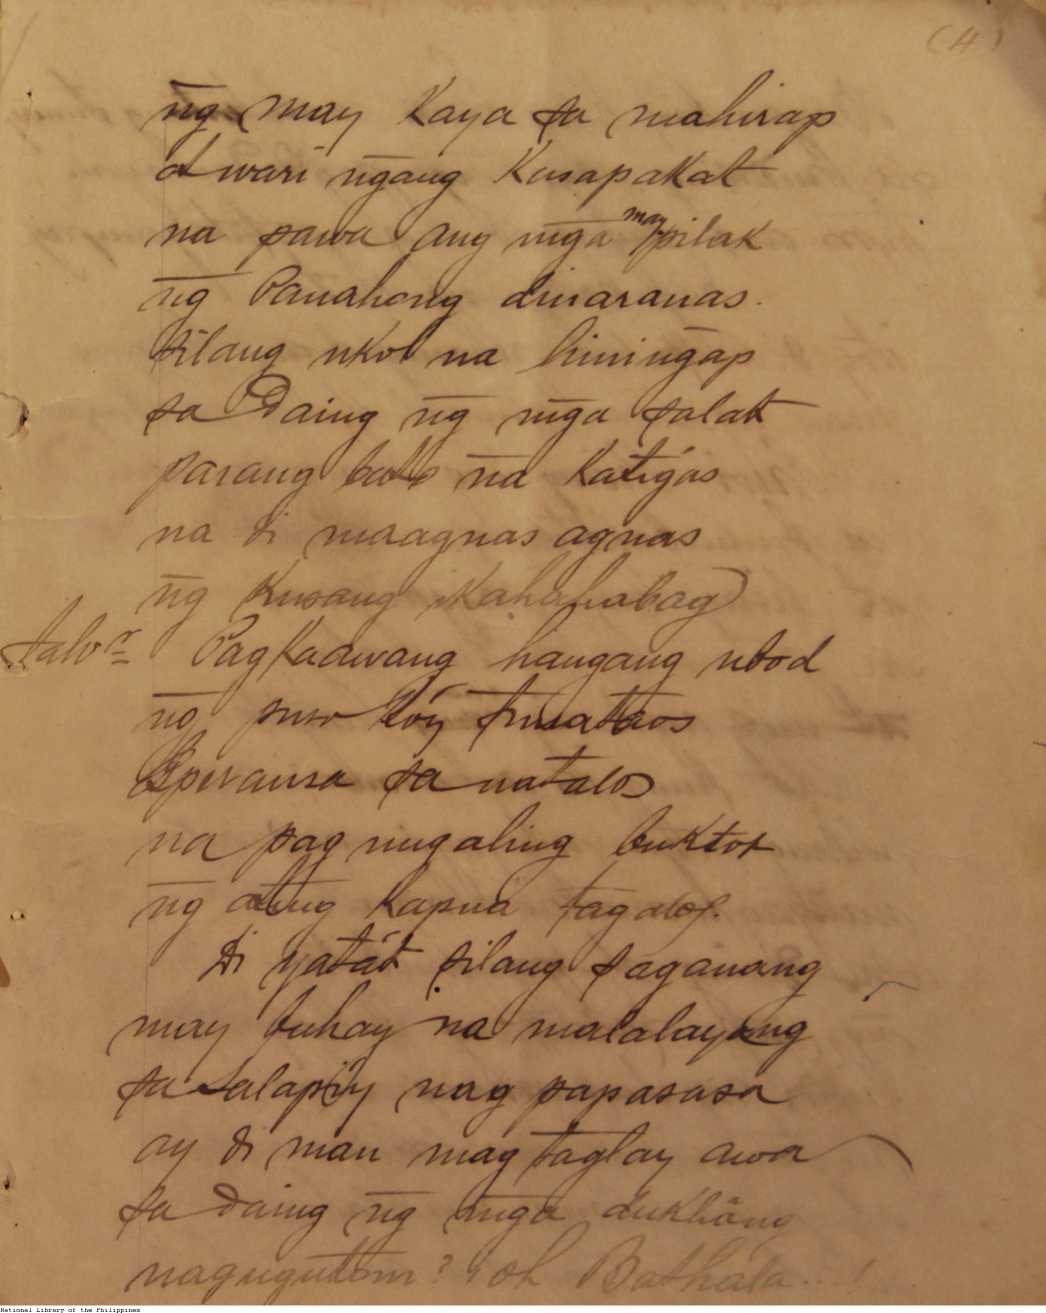 (4)
n̄g may kaya sa mahirap
at wari n̄gang kasapakat
na pawa ang mn̄ga may pilak
n̄g Panahong dinaranas.
Silang ukol na himin̄gap
sa Daing n̄g mn̄ga salat
parang bato na Katigás
na di maagnas agnas
n̄g kusang Kahahabag
Salvr Pagkaawang hangang ubod
n̄g puso koy tumataos
Esperansa sa natalos
na pag uugaling buktot
n̄g ating kapua tagalog.
Di yatát silang saganang
may buhay na malalayang
sa salapiy nag papasasa
ay di man mag taglay awa
sa Daing n̄g mn̄ga dukhâng
nagugutom? oh Bathala...!
National Library of the Philippines